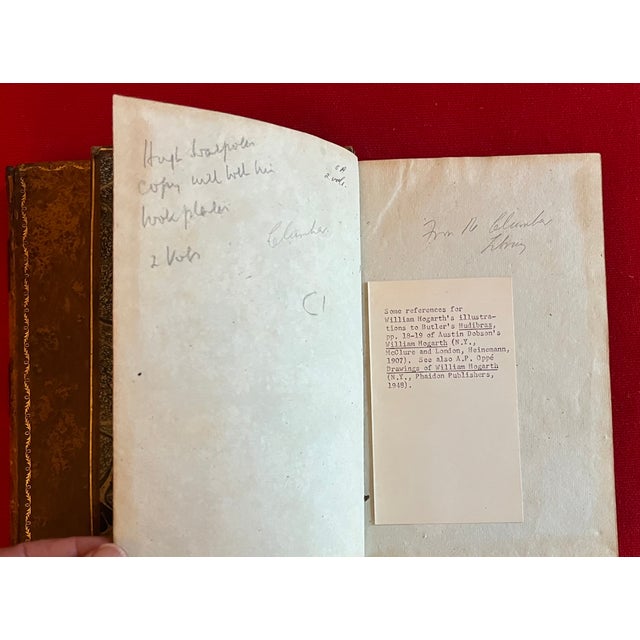 Hugh Walpoles
copy with both his
book plates
2 Vols
Columba
C1
2 vols.
From the Columba
Library
Some references for
William Hogarth's illustra-
tions to Butler's Hudibras,
pp. 18-19 of Austin Dobson's
William Hogarth (N.Y.,
McClure and London, Heinemann,
1907). See also A.P. Oppé
Drawings of William Hogarth
(N.Y., Phaidon Publishers,
1948).